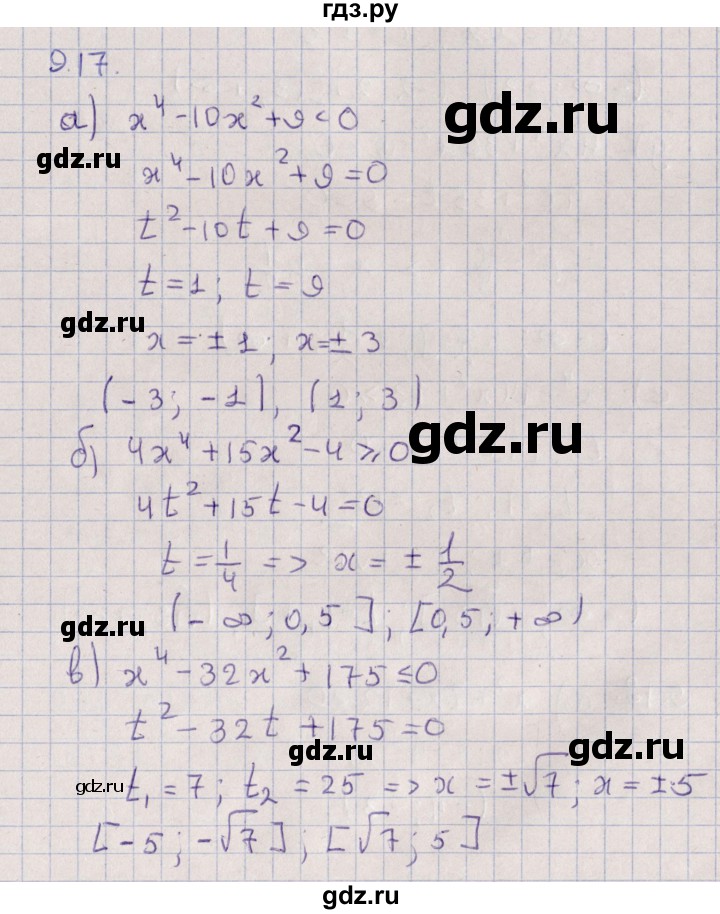 гдз.ру
9.17.
а) x⁴-10x²+9<0
gdz.ru
gdz.ru
x⁴-10x²+9=0
t²-10t+9=0
t=1; t=9
gdz.ru
x=±1; x=±3
(-3; -1), (1; 3)
gdz.ru
б) 4x⁴+15x²-4⩾0
4t²+15t-4=0
t=1/4 => x=±1/2
gdz.ru
(-∞; 0,5]; [0,5; +∞)
в) x⁴-32x²+175≤0
t²-32t+175=0
gdz.ru
gdz.ru
gdz.ru
t₁=7; t₂=25 => x=±√7; x=±5
[-5; -√7]; [√7; 5]
gdz.ru